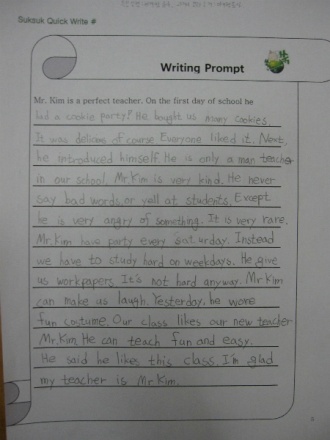 Suksuk Quick Write #
Writing Prompt
Mr. Kim is a perfect teacher. On the first day of school he
had a cookie party! He bought us many cookies.
It was delicious of course Everyone liked it. Next,
he introduced himself. He is only a man teacher
in our school. Mr.Kim is very kind. He never
say bad words, or yell at students. Except
he is very angry of something. It is very rare.
Mr.Kim have party every saturday. Instead
we have to study hard on weekdays. He give
us workpapers. It's not hard anyway. Mr Kim
can make us laugh. Yesterday, he wore
fun costume. Our class likes our new teacher
Mr.Kim. He can teach fun and easy.
He said he likes this class. I'm glad
my teacher is Mr.Kim.